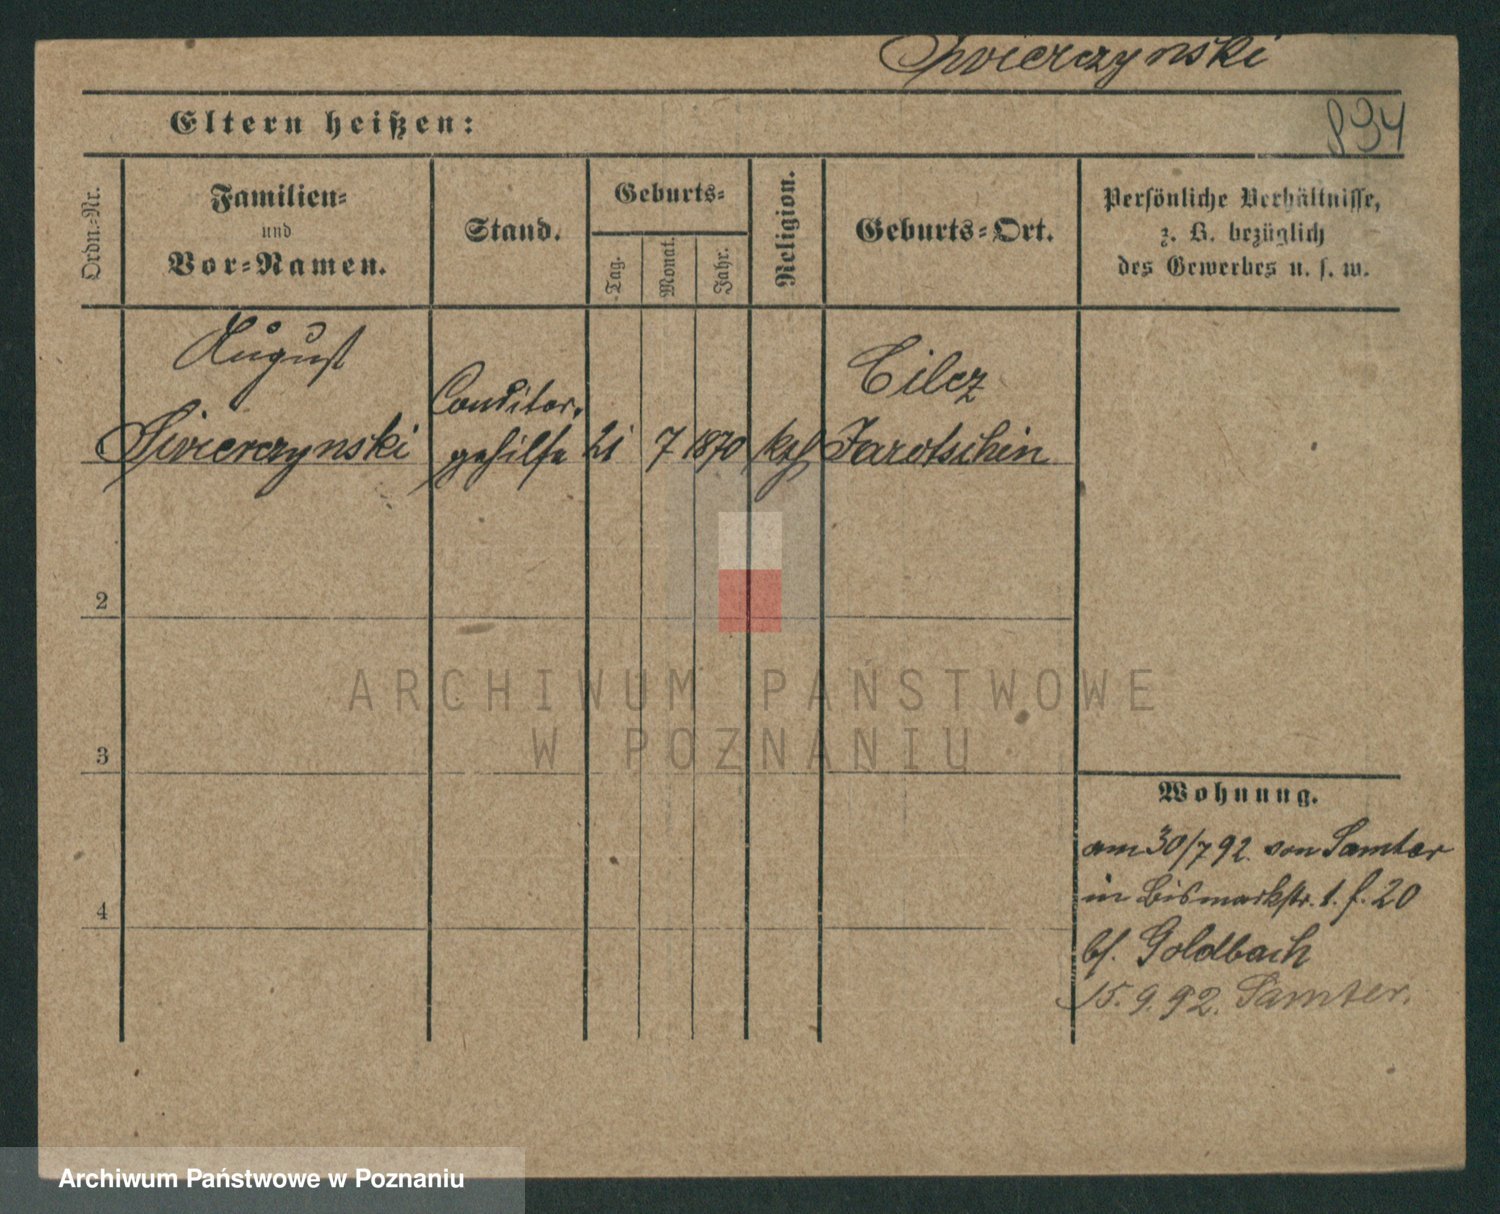 Swierczynski
Eltern heißen:
834
Ordn.-Nr.
Familien-
und
Vor-Namen.
Stand.
Geburts-
Tag.
Monat.
Jahr.
Religion.
Geburts-Ort.
Persönliche Verhältnisse,
z. B. bezüglich
des Gewerbes u. s. w.
August
Swierczynski
Conditor-
gehilfe
21
7
1870
kath
Cilcz
Jarotschin
2
3
4
Wohnung.
am 30/7 92. von Samter
in Bismarkstr. 1. f. 20
bf. Goldbach
15. 9. 92. Samter.
ARCHIWUM PAŃSTWOWE
W POZNANIU
Archiwum Państwowe w Poznaniu